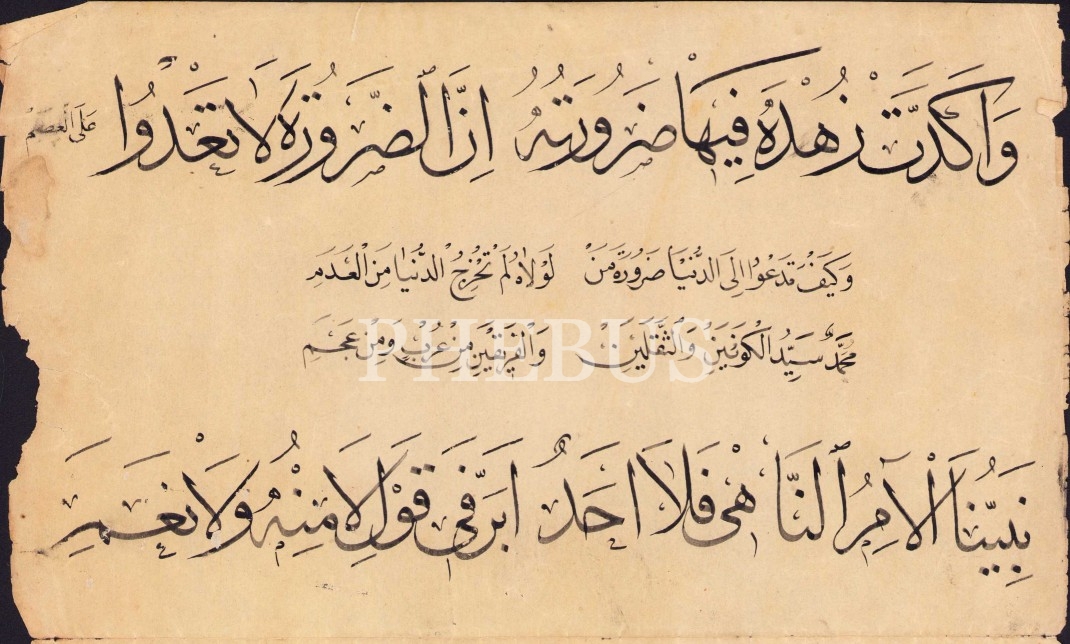 وَاَكَدَّتْ زُهْدَهُ فِيهَا ضَرُورَتُهُ اِنَّ الضَّرُورَةَ لَا تَعْدُوا
عَلَى الْعِصَمِ
وَكَيْفَ تَدْعُوا اِلَى الدُّنْيَا ضَرُورَةُ مَنْ لَوْلَاهُ لَمْ تَخْرُجِ الدُّنْيَا مِنَ الْعَدَمِ
مُحَمَّدٌ سَيِّدُ الْكَوْنَيْنِ وَالثَّقَلَيْنِ وَالْفَرِيقَيْنِ مِنْ عُرْبٍ وَمِنْ عَجَمِ
PHEBUS
نَبِيُّنَا الْآمِرُ النَّاهِى فَلَا اَحَدٌ اَبَرَّ فِى قَوْلِ لَا مِنْهُ وَلَا نَعَمِ